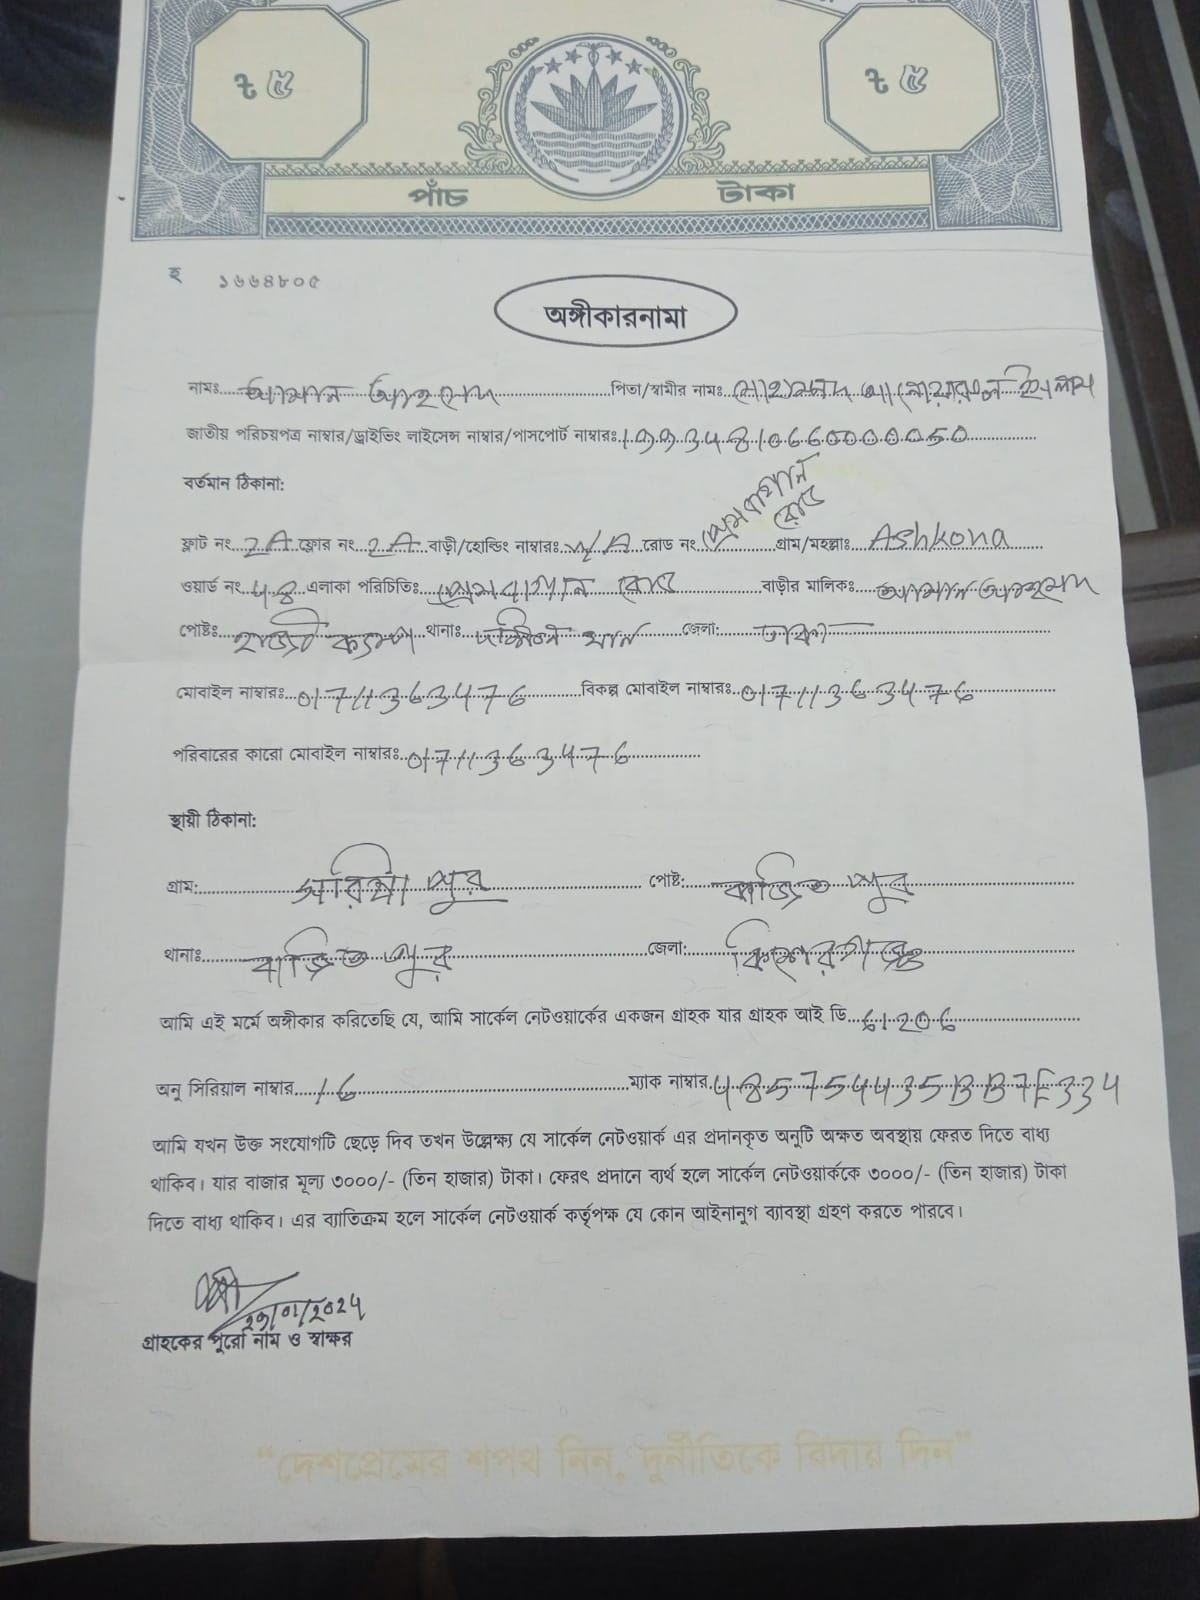 ৳ ৫ ৳ ৫
পাঁচ টাকা
হ ১৬৬৪৮০৫
অঙ্গীকারনামা
নামঃ আমান আহমেদ পিতা/স্বামীর নামঃ মোহাম্মদ আনোয়ারুল ইসলাম
জাতীয় পরিচয়পত্র নাম্বার/ড্রাইভিং লাইসেন্স নাম্বার/পাসপোর্ট নাম্বারঃ
বর্তমান ঠিকানা:
ফ্লাট নং 2A ফ্লোর নং 2A বাড়ী/হোল্ডিং নাম্বারঃ N/A রোড নং প্রেমবাগান রোড গ্রাম/মহল্লাঃ Ashkona
ওয়ার্ড নং 48 এলাকা পরিচিতিঃ প্রেমবাগান রোড বাড়ীর মালিকঃ আমান আহমেদ
পোষ্টঃ হাজী ক্যাম্প থানাঃ দক্ষিণ খান জেলা: ঢাকা
মোবাইল নাম্বারঃ 01711363476 বিকল্প মোবাইল নাম্বারঃ 01711363476
পরিবারের কারো মোবাইল নাম্বারঃ 01711363476
স্থায়ী ঠিকানা:
গ্রাম: পোষ্ট: বাজিতপুর
থানাঃ বাজিতপুর জেলা: কিশোরগঞ্জ
আমি এই মর্মে অঙ্গীকার করিতেছি যে, আমি সার্কেল নেটওয়ার্কের একজন গ্রাহক যার গ্রাহক আই ডি 61206
অনু সিরিয়াল নাম্বার 16 ম্যাক নাম্বার 485754435BB7E334
আমি যখন উক্ত সংযোগটি ছেড়ে দিব তখন উল্লেক্ষ্য যে সার্কেল নেটওয়ার্ক এর প্রদানকৃত অনুটি অক্ষত অবস্থায় ফেরত দিতে বাধ্য
থাকিব। যার বাজার মূল্য ৩০০০/- (তিন হাজার) টাকা। ফেরৎ প্রদানে ব্যর্থ হলে সার্কেল নেটওয়ার্ককে ৩০০০/- (তিন হাজার) টাকা
দিতে বাধ্য থাকিব। এর ব্যাতিক্রম হলে সার্কেল নেটওয়ার্ক কর্তৃপক্ষ যে কোন আইনানুগ ব্যাবস্থা গ্রহণ করতে পারবে।
29/01/2024
গ্রাহকের পুরো নাম ও স্বাক্ষর
“দেশপ্রেমের শপথ নিন, দুর্নীতিকে বিদায় দিন”